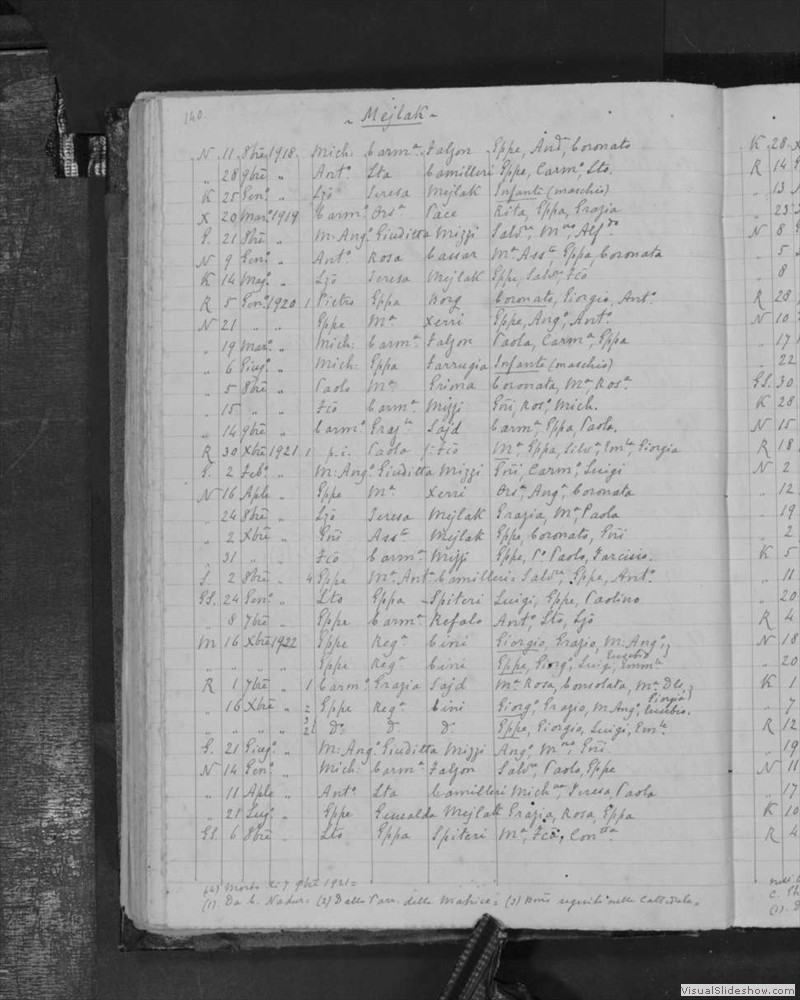 140.
~ Mejlak ~
N 11 8bre 1918. Mich: Carm.a Falzon Eppe, And, Coronato
" 28 9bre " Ant.o Lta Camilleri Eppe, Carm.o, Lto.
K 25 Gen.o " Ljo Teresa Mejlak Infante (maschio)
X 20 Mar.o 1919 Carm. Ors.a Pace Rita, Eppa, Grazia
G. 21 8bre " M: Ang.o Giuditta Mizzi
N 9 Gen.o " Ant.o Rosa Cassar M.a Ass.ta, Eppa, Coronata
K 14 Mag.o " Ljo Teresa Mejlak Eppe, Salv.re
R 5 Gen.o 1920 1 Pietro Eppa Borg Coronato, Giorgio, Ant.o
N 21 " " Eppe M.a Xerri Eppe, Ang.o, Ant.o
" 19 Mar.o " Mich: Carm.a Falzon Paola, Carm.a, Eppa
" 6 Giug.o " Mich: Eppa Farrugia Infante (maschio)
" 5 8bre " Paolo M.a Grima Coronata, M.a, Ros.a
" 15 " " Fco Carm.a Mizzi Gni, Ros.o, Mich.
" 14 9bre " Carm.o Graz.a Sajd Carm.a, Eppa, Paola.
R 30 Xbre 1921 1 p.i. Paola f: Fco M.a, Eppa, Salv.a, Em.la, Giorgia
G. 2 Feb.o " M: Ang.o Giuditta Mizzi Gni, Carm.o, Luigi
N 16 Aple " Eppe M.a Xerri Ors.a, Ang.a, Coronata
" 24 8bre " Ljo Teresa Mejlak Grazia, M.a, Paola
" 2 Xbre " Gni Ass.ta Mejlak Eppe, Coronato, Gni
" 31 " " Fco Carm.a Mizzi Eppe, P.o Paolo, Tarcisio.
S. 2 8bre " 4 Eppe M.a Ant.a Camilleri Salv.re, Eppe, Ant.o
GS. 24 Gen.o " Lto Eppa Spiteri Luigi, Eppe, Paolino
" 8 7bre " Eppe Carm.a Refalo Ant.o, Lto, Ljo
M 16 Xbre 1922 Eppe Reg.a Cini Giorgio, Grazio, M: Ang.o,
Eusebio
" " " " Eppe Reg.a Cini Eppe, Giorg.o, Luigi, Emm.le
R 1 7bre " 1 Carm.o Grazia Sajd M.a Rosa, Consolata, M.a
Giorgio
" 16 Xbre " 2 Eppe Reg.a Cini Giorg.o, Grazio, M: Ang.o, Eusebio.
" " " " 3 2 D.o D. D. Eppe, Giorgio, Luigi, Em.le
G. 21 Giug.o " M: Ang.o Giuditta Mizzi Ang.o, M.no, Gni
N 14 Gen.o " Mich: Carm.a Falzon Salv.re, Paolo, Eppe
" 11 Aple " Ant.o Lta Camilleri Mich.na, Teresa, Paola
" 21 Lug.o " Eppe Mejlak Grazia, Rosa, Eppa
GS. 6 8bre " Lto Eppa Spiteri M.a, Fca, Con.tta
(4) Morto li 7 9bre 1921 =
(1). Da C. Nadur: (2) Dalla Parr. della Matrice: (3) seguiti nella Cattedrale.
K 28
R 14
" 13
" 23
N 8
" 5
" 8
R 28
N 10
" 17
" 22
GS. 30
K 28
N 15
R 18
N 2
" 12
" 19
" 2
K 5
" 11
" 20
R 4
N 18
" 20
K 1
" 7
R 12
" 19
N 11
" 17
K 10
R 4
VisualSlideshow.com